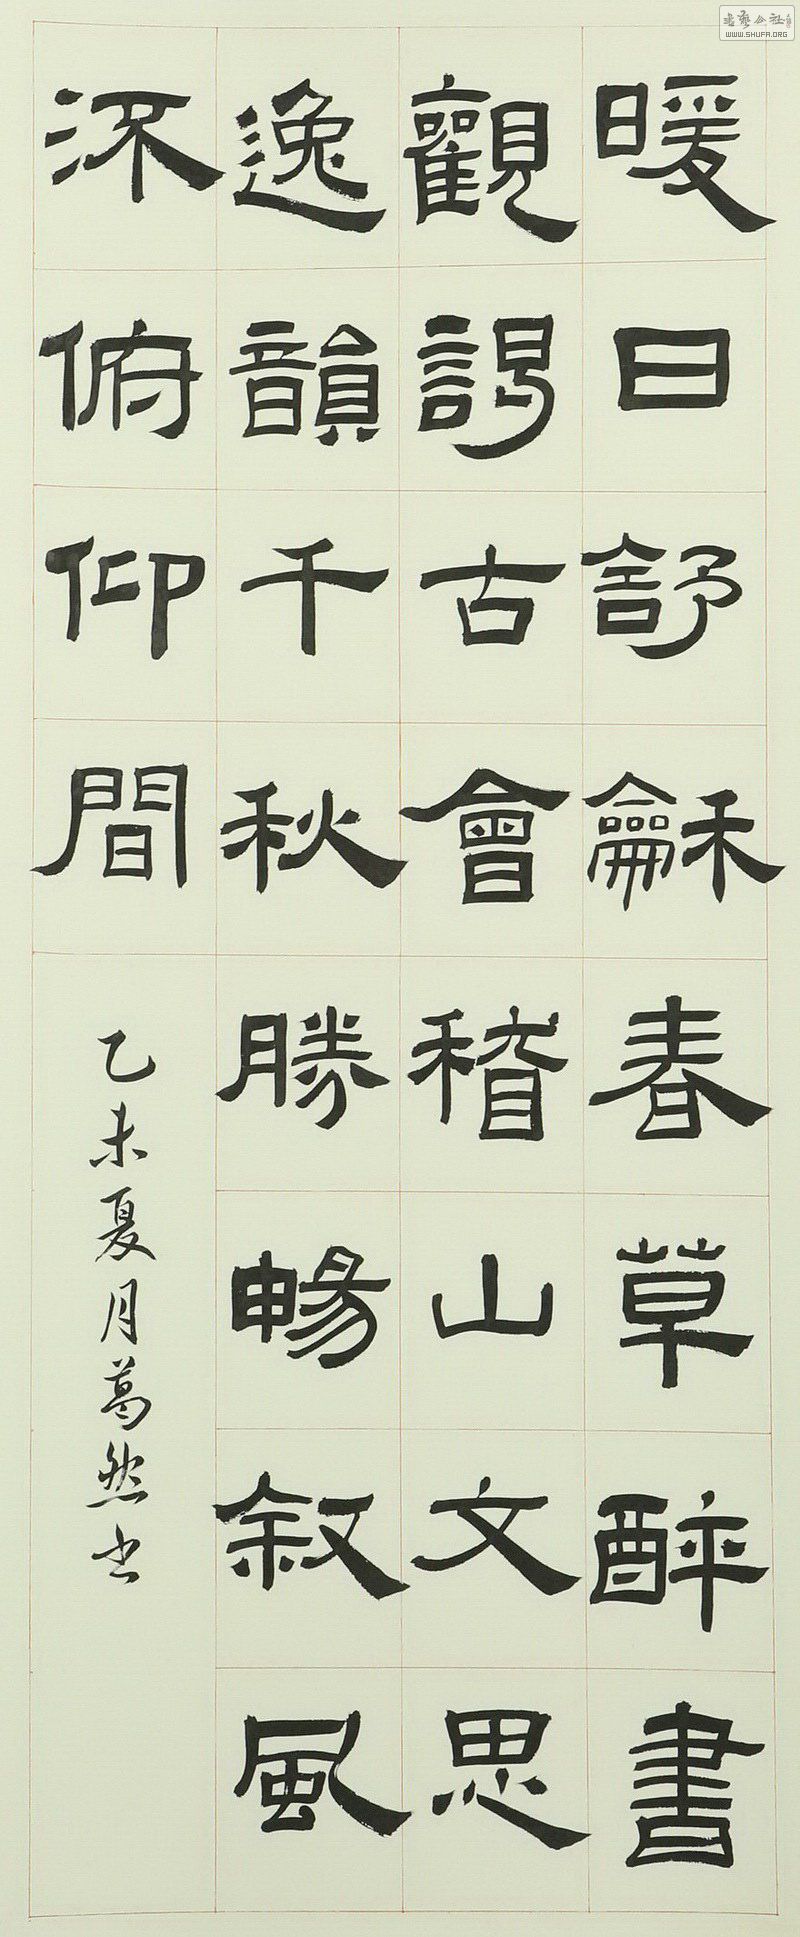 書藝公社
WWW.SHUFA.ORG
暖日舒龢春草醉書
觀謁古會稽山文思
逸韻千秋勝暢叙風
㳅俯仰間
乙未夏月葛然书